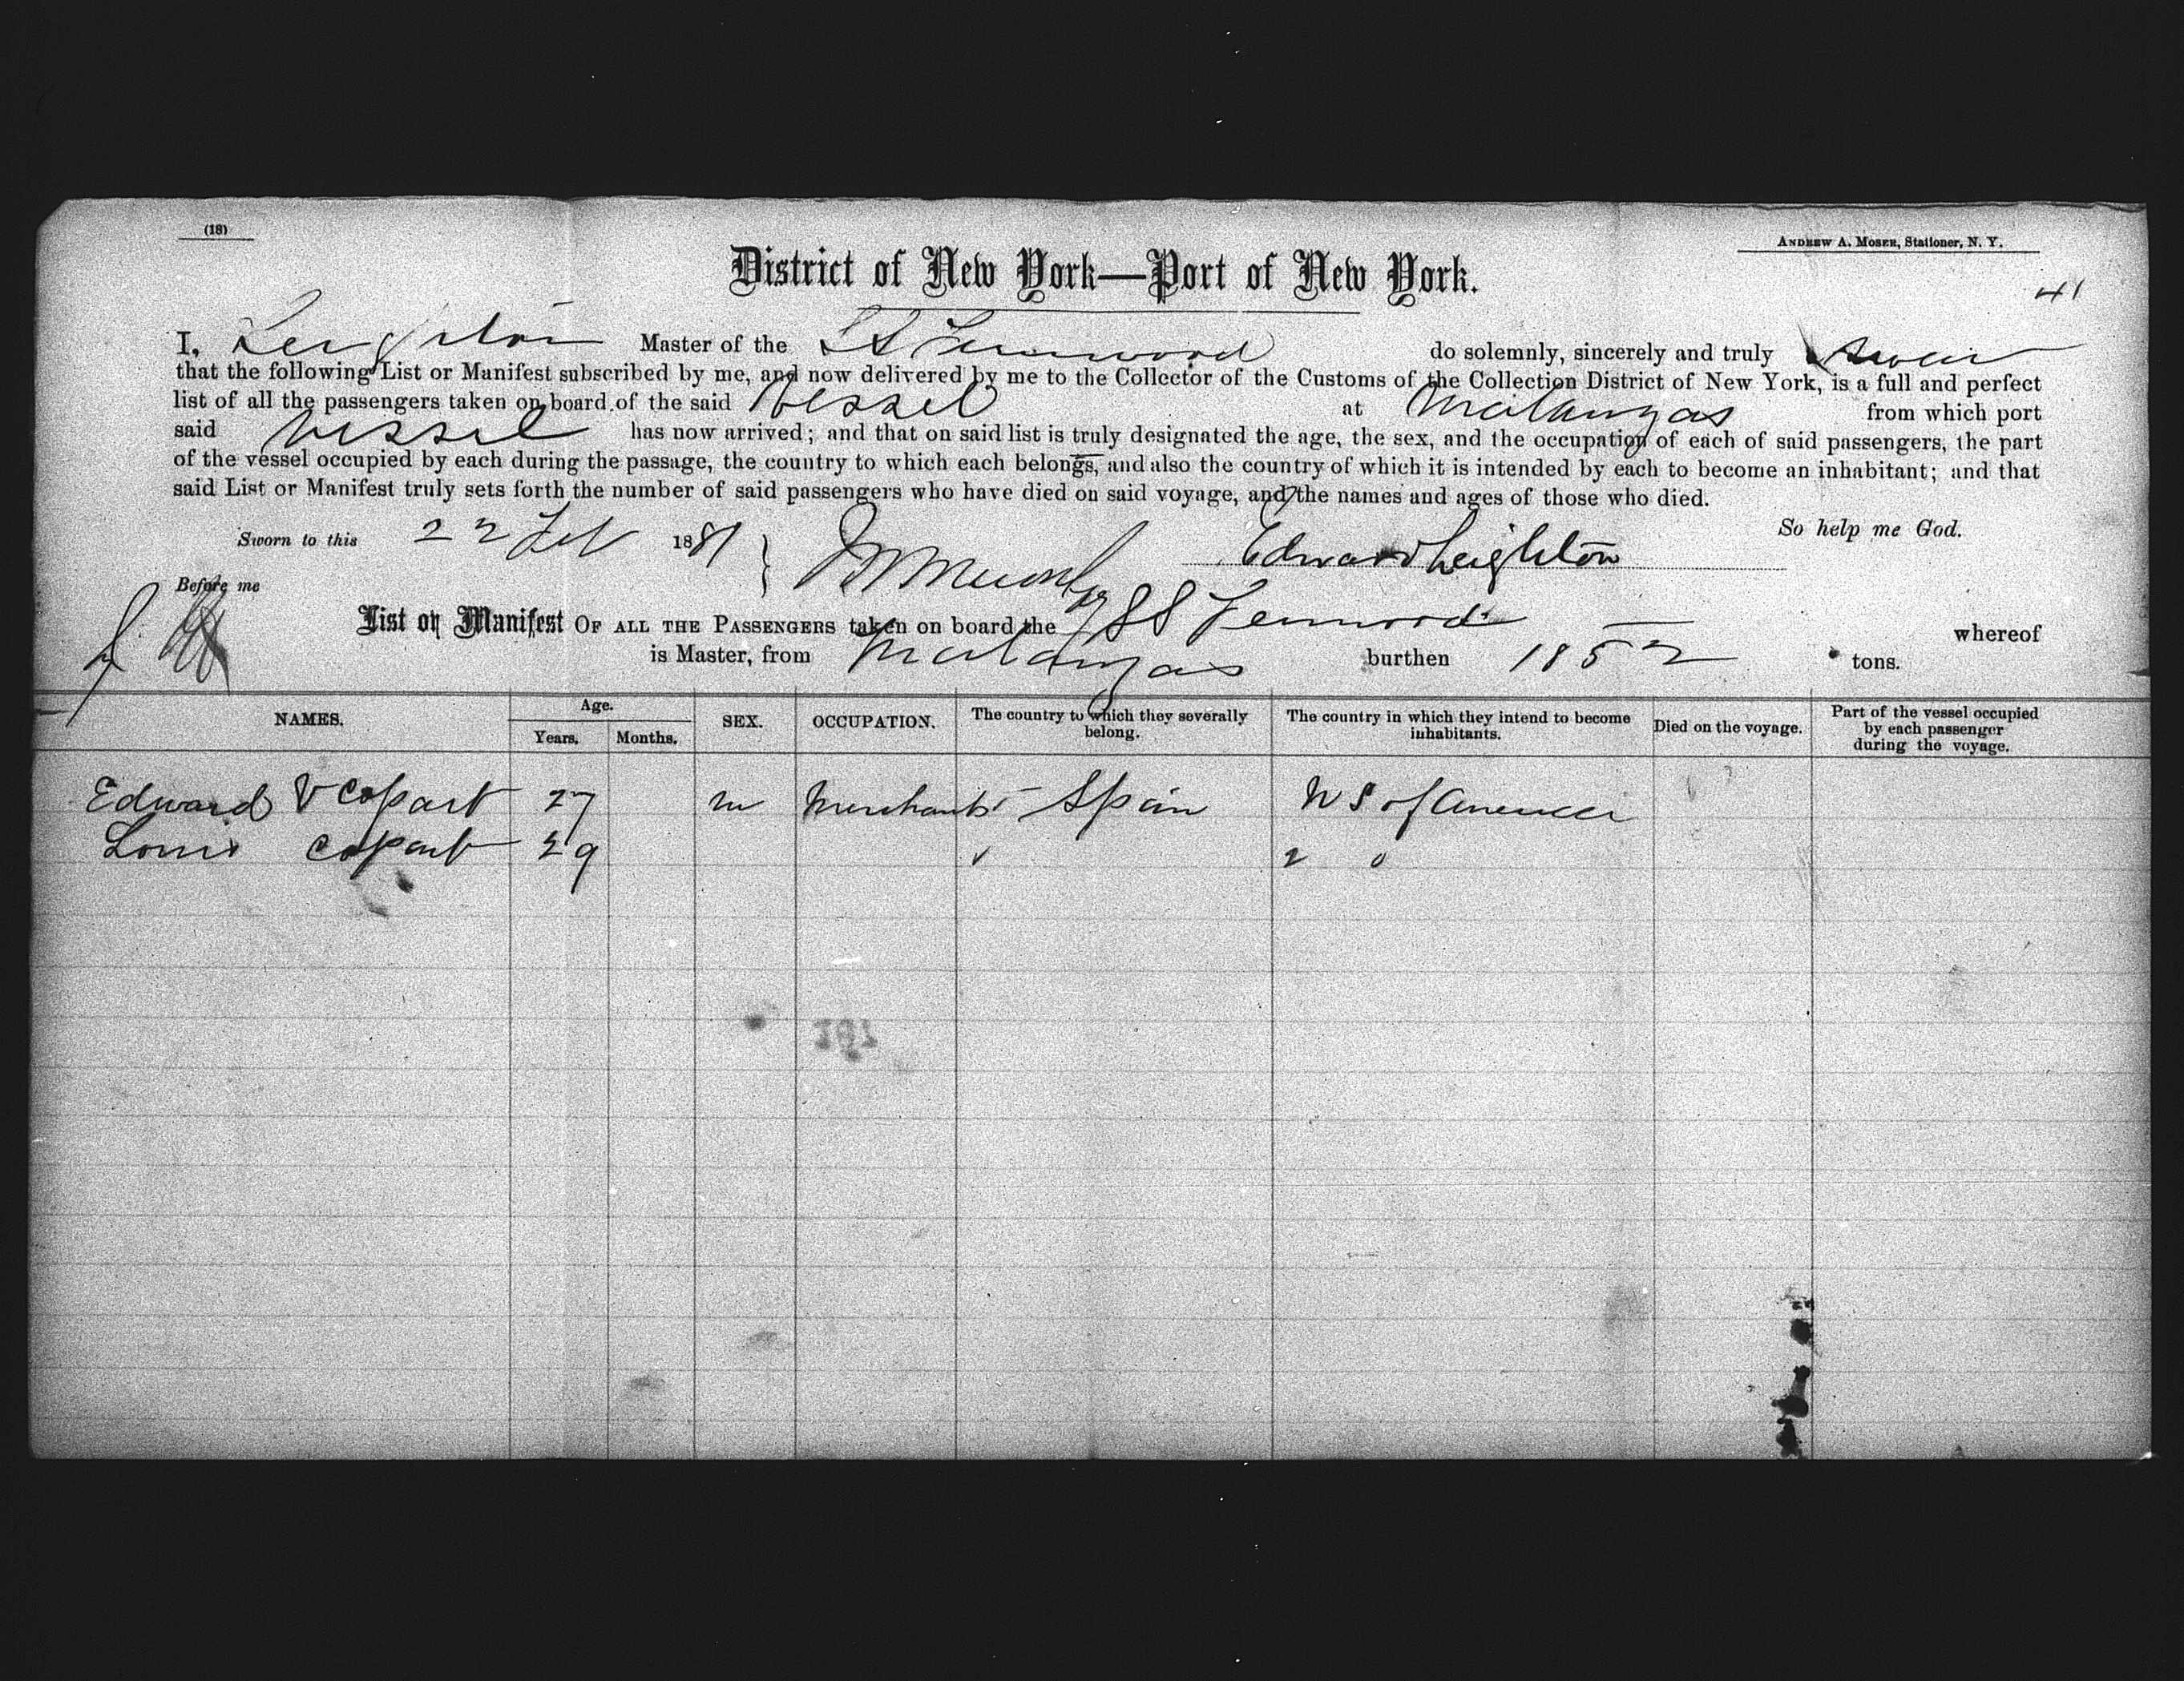 (18)
ANDREW A. MOSER, Stationer, N. Y.
District of New York—Port of New York.
41
I, Leighton Master of the SS Fernwood do solemnly, sincerely and truly swear
that the following List or Manifest subscribed by me, and now delivered by me to the Collector of the Customs of the Collection District of New York, is a full and perfect
list of all the passengers taken on board of the said Vessel at Matanzas from which port
said vessel has now arrived; and that on said list is truly designated the age, the sex, and the occupation of each of said passengers, the part
of the vessel occupied by each during the passage, the country to which each belongs, and also the country of which it is intended by each to become an inhabitant; and that
said List or Manifest truly sets forth the number of said passengers who have died on said voyage, and the names and ages of those who died.
So help me God.
Sworn to this 22 Feb 1881
Edward Leighton
Before me
List or Manifest OF ALL THE PASSENGERS taken on board the SS Fernwood whereof
is Master, from Matanzas burthen 1852 tons.
NAMES. Age. Years. Months. SEX. OCCUPATION. The country to which they severally belong. The country in which they intend to become inhabitants. Died on the voyage. Part of the vessel occupied by each passenger during the voyage.
Edward V Copart 27 m Merchants Spain U S of America
Louis Copart 29